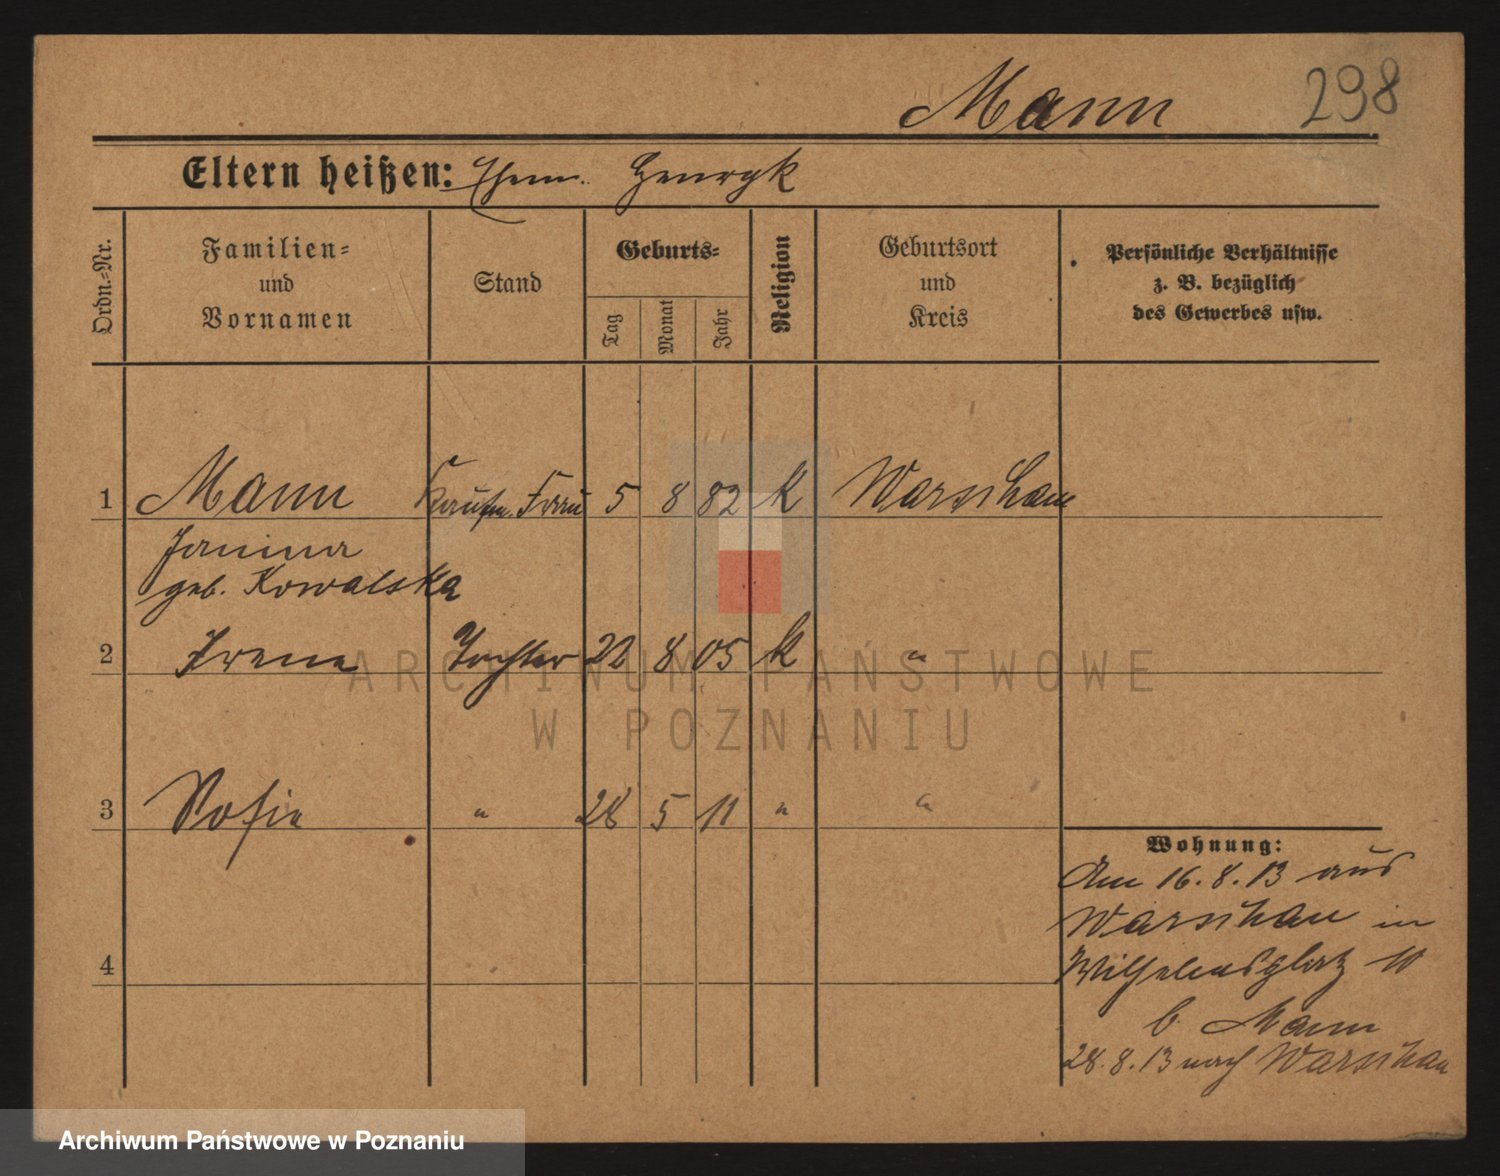 Mann 298
Eltern heißen: Ehem. Henryk
Ordn.-Nr. Familien- und Vornamen Stand Geburts- Tag Monat Jahr Religion Geburtsort und Kreis Persönliche Verhältnisse z. B. bezüglich des Gewerbes usw.
1 Mann Kaufm. Frau 5 8 82 K Warschau
Janina
geb. Kowalska
2 Irena Tochter 22 8 05 K "
ARCHIWUM PAŃSTWOWE
W POZNANIU
3 Sofia " 28 5 11 " "
Wohnung:
Am 16.8.13 aus
Warschau in
4 Wilhelmsplatz 10
b. Mann
28.8.13 nach Warschau
Archiwum Państwowe w Poznaniu